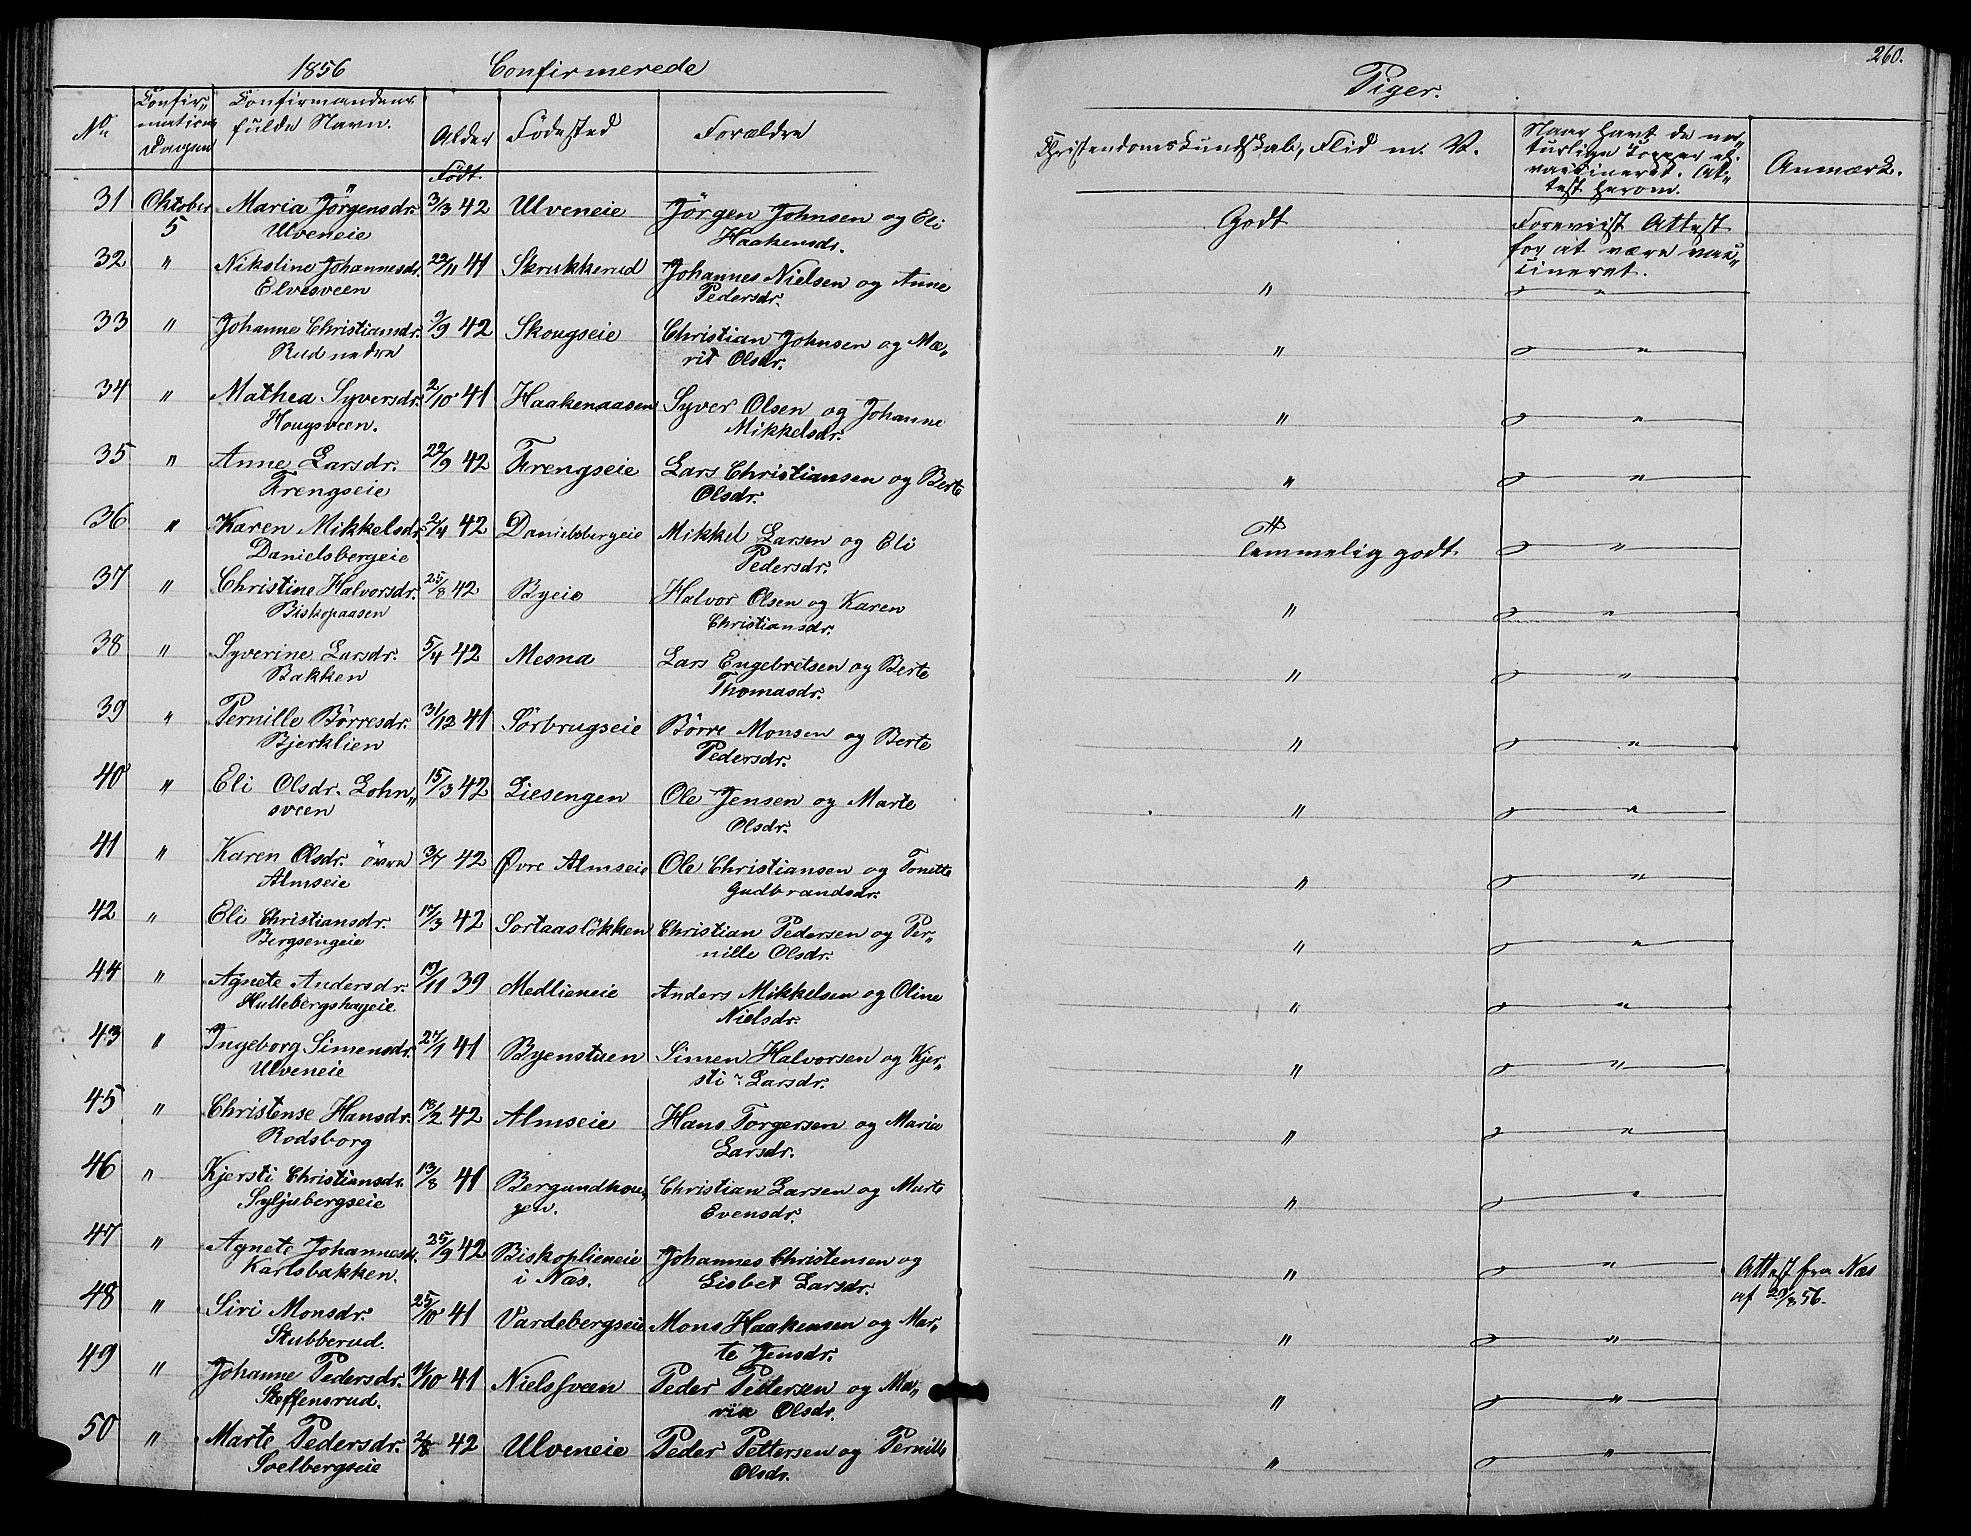 1856 Confirmerede
Piger.
260.
No
Confir-
mations
Dagen
Confirmandens
fulde Navn.
Alder
Født.
Fødested
Forældre
Christendoms Kundskab, Flid m. V.
Naar havt de na-
turlige Kopper el.
vaccineret. At-
test herom.
Anmærk.
31 Oktober Maria Jörgensdr. 3/3 42 Ulveneie Jörgen Johnsen og Eli Godt Foreviist Attest
5 Ulveneie Haakensdr. for at være vac-
cineret.
32 " Nikoline Johannesdr. 22/11 41 Skrukkerud Johannes Nielsen og Anne " "
Elvesveen Pedersdr.
33 " Johanne Christiansdr. 9/9 42 Skougseie Christian Johnsen og Ma- " "
Rud nedre rit Olsdr.
34 " Mathea Syversdr. 2/10 41 Haakenaasen Syver Olsen og Johanne " "
Hougsveen. Mikkelsdr.
35 " Anne Larsdr. 22/9 42 Frengseie Lars Christiansen og Berte " "
Frengseie Olsdr.
36 " Karen Mikkelsdr. 2/4 42 Danielsbergeie Mikkel Larsen og Eli Temmelig godt. "
Danielsbergeie Pedersdr.
37 " Christine Halvorsdr. 25/8 42 Byeie Halvor Olsen og Karen " "
Biskopaasen Christiansdr.
38 " Syverine Larsdr. 5/4 42 Mesna Lars Engebretsen og Berte " "
Bakken Thomasdr.
39 " Pernille Börresdr. 31/12 41 Sörbrugseie Börre Monsen og Berte " "
Bjerklien Pedersdr.
40 " Eli Olsdr. Lohn- 15/3 42 Liesengen Ole Jensen og Marte " "
sveen Olsdr.
41 " Karen Olsdr. övre 3/7 42 Øvre Almseie Ole Christiansen og Tonette " "
Almseie Gudbrandsdr.
42 " Eli Christiansdr. 17/3 42 Sortaaslökken Christian Pedersen og Per- " "
Bergsengeie nille Olsdr.
44 " Agnete Andersdr. 19/11 39 Medlieneie Anders Mikkelsen og Oline " "
Hullebergshageie Nielsdr.
43 " Ingeborg Simensdr. 27/1 41 Byenstuen Simen Halvorsen og Kjer- " "
Ulveneie sti Larsdr.
45 " Christense Hansdr. 18/2 42 Almseie Hans Torgersen og Maria " "
Rodsborg Larsdr.
46 " Kjersti Christiansdr. 13/8 41 Bergundhou- Christian Larsen og Marte " "
Syljubergseie gen. Evensdr.
47 " Agnete Johannesd. 25/9 42 Biskoplieneie Johannes Christensen og " " Attest fra Næs
Karlsbakken. i Næs. Lisbet Larsdr. af 29/8 56.
48 " Siri Monsdr. 25/10 41 Vardebergseie Mons Haakensen og Mar- " "
Stubberud. te Jensdr.
49 " Johanne Pedersdr. 11/10 41 Nielssveen Peder Pettersen og Ma- " "
Steffensrud. ria Olsdr.
50 " Marte Pedersdr. 2/8 42 Ulveneie Peder Pettersen og Pernille " "
Soelbergseie Olsdr.